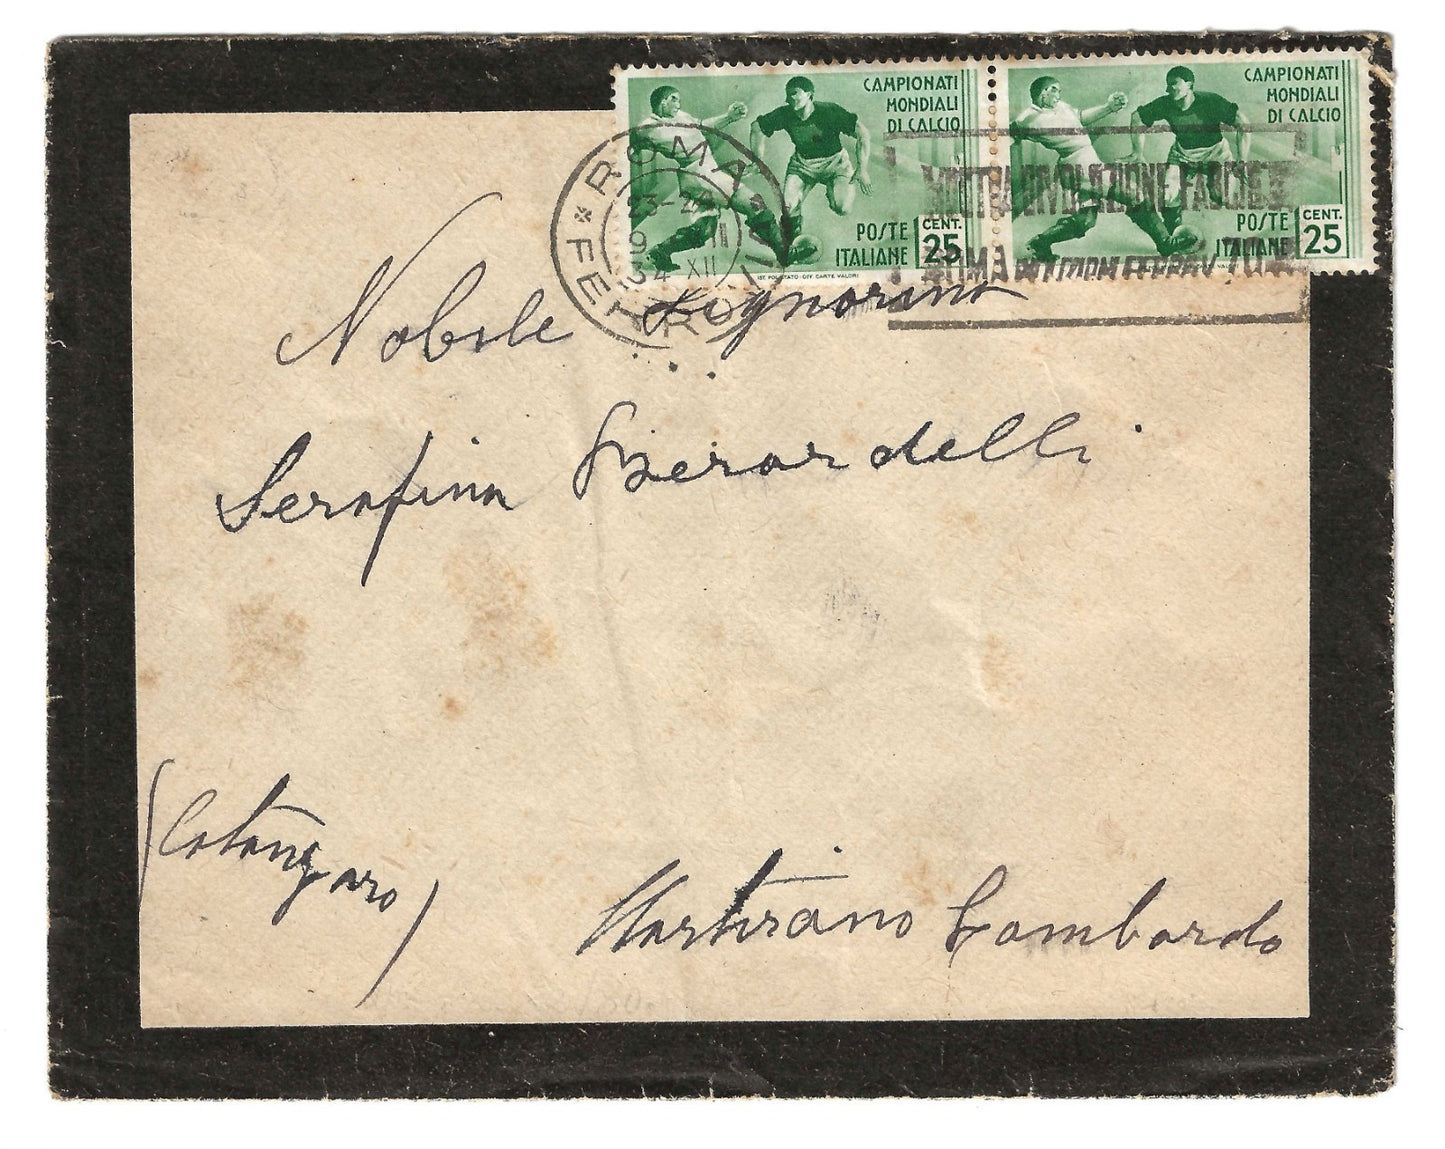 CAMPIONATI
MONDIALI
DI CALCIO
POSTE
ITALIANE
CENT.
25
IST. POLIGRAFO OFF. CARTE VALORI
CAMPIONATI
MONDIALI
DI CALCIO
POSTE
ITALIANE
CENT.
25
* ROMA *
23-24
9 II
34 XII
FERROVIA
MOSTRA RIVOLUZIONE FASCISTA
ROMA
Nobile Signorina
Serafina Berardelli
(Catanzaro)
Martirano Lombardo